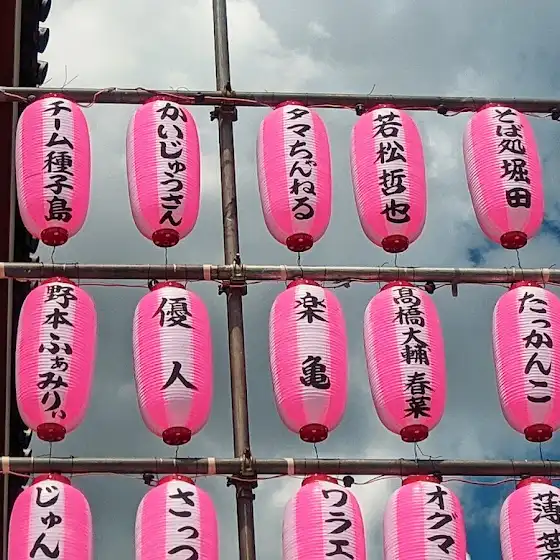 チーム種子島
かいじゅうさん
タマちゃんねる
若松哲也
そば処堀田
野本ふぁみりぃ
優人
楽亀
髙橋大輔 春菜
たっかんこ
じゅん
さっつ
ワラエ
オグマ
薄